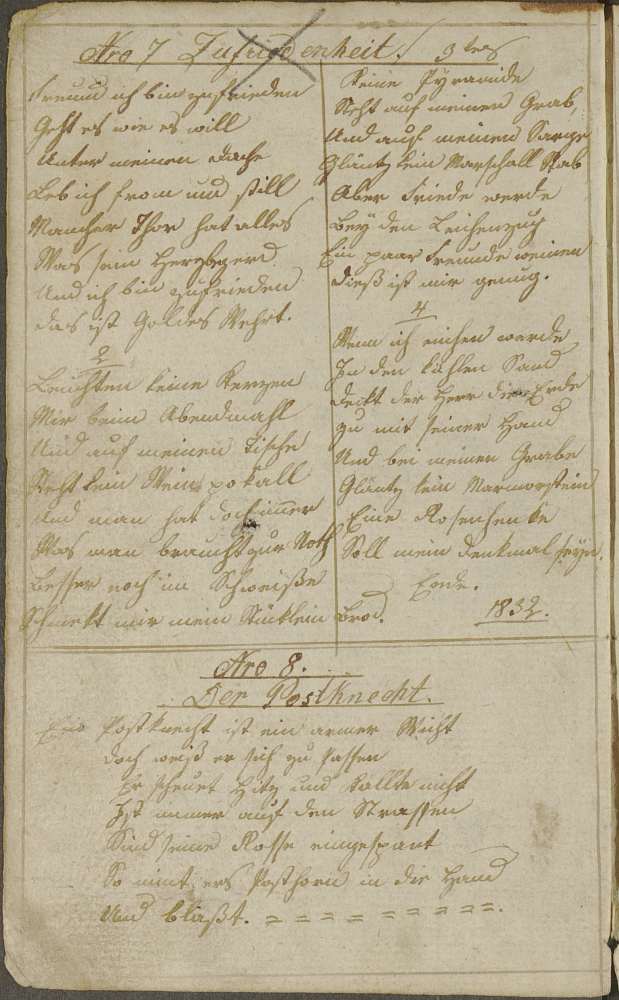 Nro 7 Zufriedenheit.
Freund ich bin zufrieden
Geht es wie es will
Unter meinen Dache
Leb ich from und still
Mancher Thor hat alles
Was sein Herz begert
Und ich bin zufrieden
Das ist Goldes Wehrt.
2
Leuchten keine Kerzen
Mir beim Abendmahl
Und auf meinen Tische
Steht kein Wein pokall
Und man hat doch imer
Was man braucht zur Noth
Besser noch im Schweiße
Schmekt mir mein Stücklein Brod.
3tes
Keine Pyramide
Steht auf meinen Grab,
Und auf meinen Sarge
Gläntz kein Marschall Stab
Aber Friede werde
Bey den Leichenzug
Ein paar Freunde weinen
Dieß ist mir genug.
4
Wenn ich einsen werde
In den kühlen Sand
Deckt der Herr die Erde
zu mit seiner Hand
Und bei meinen Grabe
Gläntz kein Marmorstein
Eine Rosenhenke
Soll mein Denkmal seyn.
Ende.
1832.
Nro 8.
Der Postknecht.
Ein Postknecht ist ein armer Wicht
Doch weiß er sich zu passen
Er scheuet Hitz und Källte nicht
Ist immer auf den Strassen
Sind seine Rosse eingespant
So nimt ers Posthorn in die Hand
Und blaßt. = = = = = = = = =.